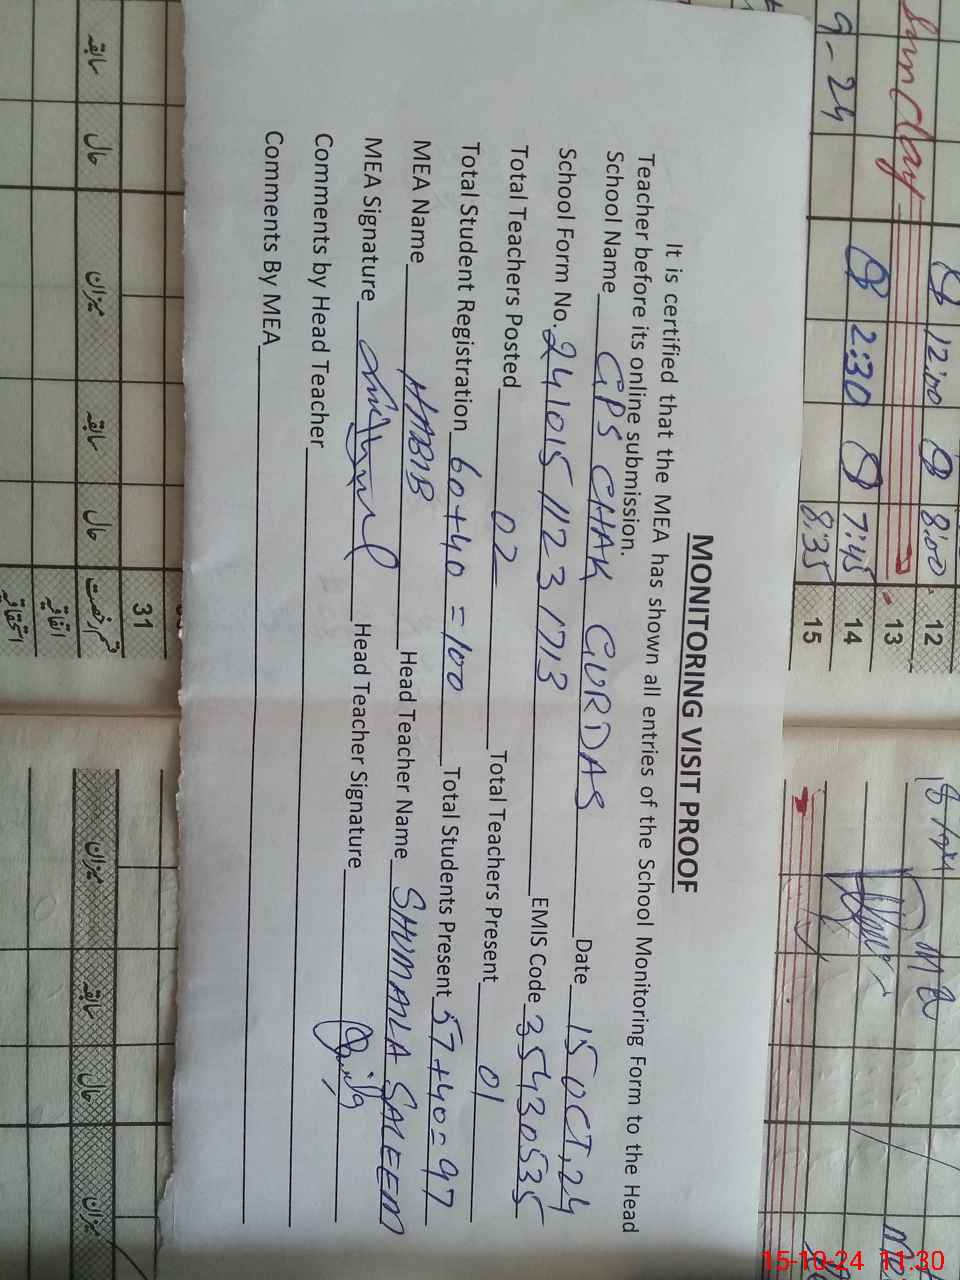 MONITORING VISIT PROOF
It is certified that the MEA has shown all entries of the School Monitoring Form to the Head
Teacher before its online submission.
School Name GPS CHAK GURDAS Date 15 OCT, 24
School Form No. 241015 1123 1713 EMIS Code 35430535
Total Teachers Posted 02 Total Teachers Present 01
Total Student Registration 60+40 = 100 Total Students Present 57+40=97
MEA Name HABIB Head Teacher Name SHUMAILA SALEEM
MEA Signature Head Teacher Signature
Comments by Head Teacher
Comments By MEA
12:00 8:00 12
Sunday 13
9-24 2:30 7:45 14
8:35 15
31
سابقہ حال میزان سابقہ حال
میزان سابقہ حال میزان
15-10-24 11:30